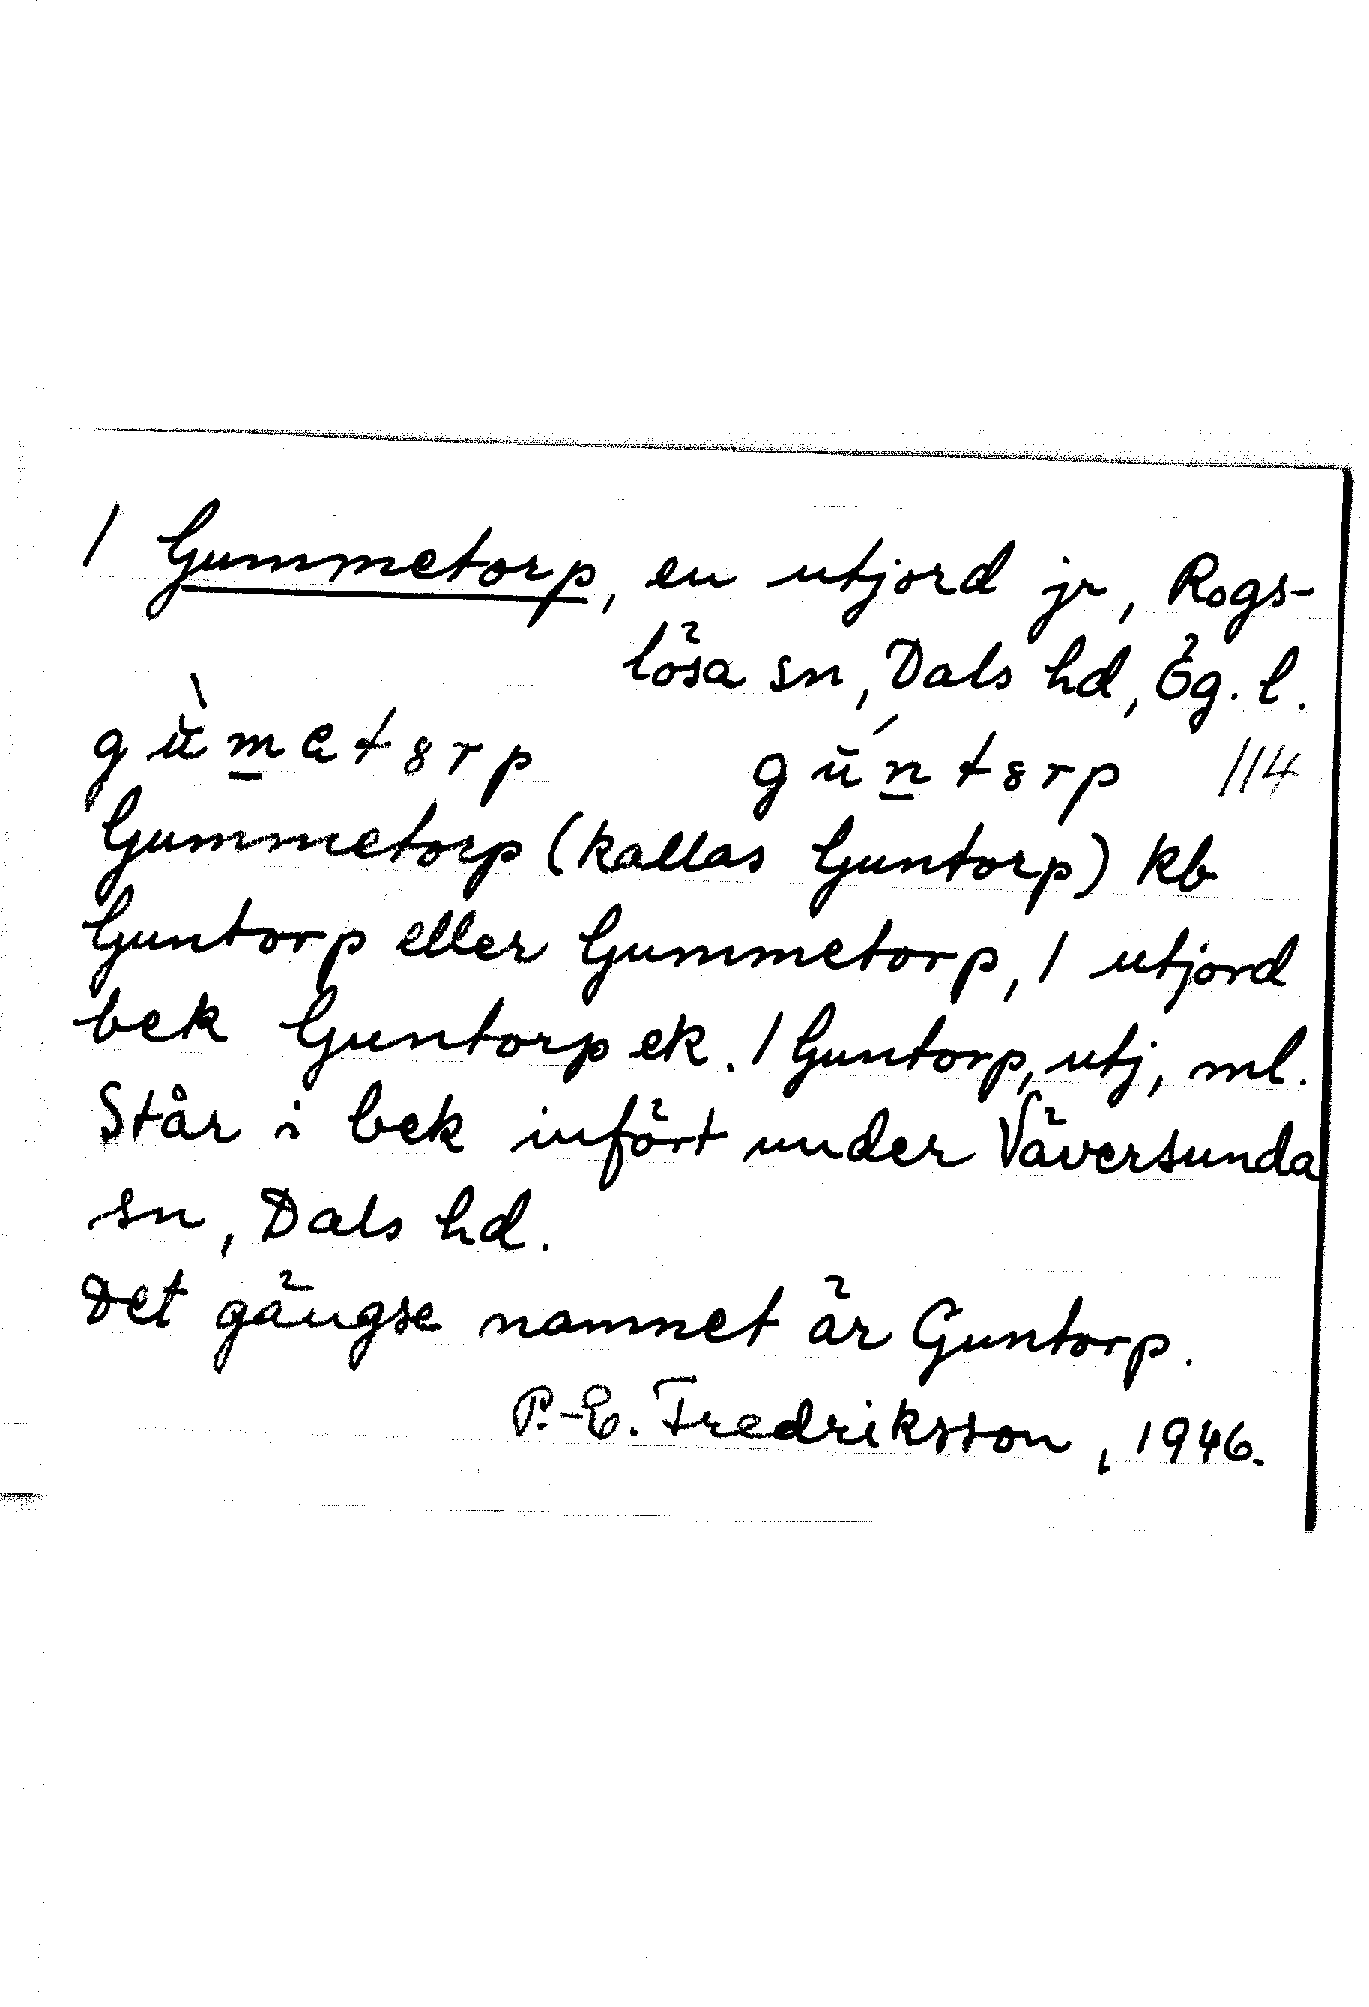 1 Gummetorp, en utjord jr, Rogs-
lösa sn, Dals hd, Ög. l.
gùmetårp gúntårp 114
Gummetorp (kallas Guntorp) kb
Guntorp eller Gummetorp, 1 utjord
bek Guntorp ek. 1 Guntorp, utj, ml.
Står i bek infört under Väversunda
sn, Dals hd.
Det gängse namnet är Guntorp.
P.-E. Fredriksson, 1946.